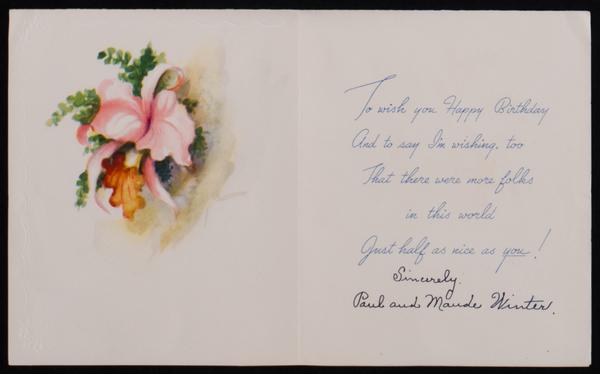 To wish you Happy Birthday
And to say I'm wishing, too
That there were more folks
in this world
Just half as nice as you!
Sincerely,
Paul and Maude Winter.